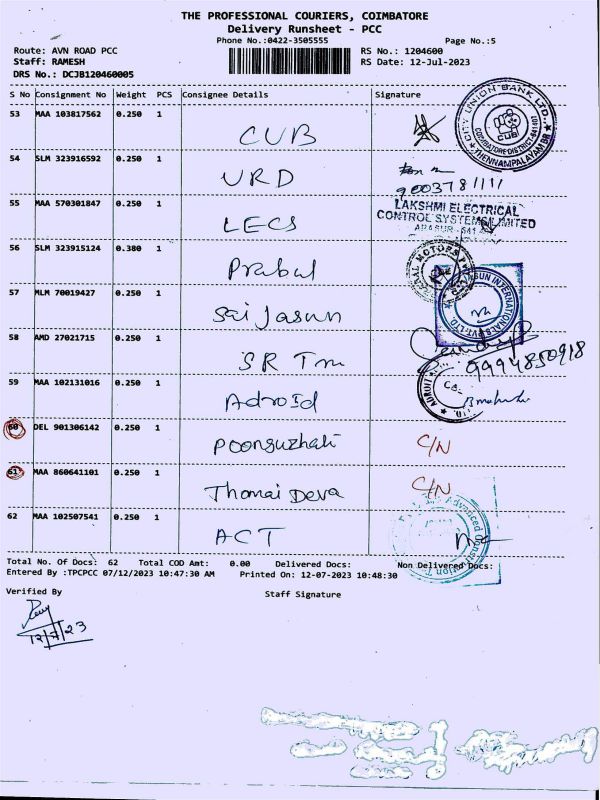 THE PROFESSIONAL COURIERS, COIMBATORE
Delivery Runsheet - PCC
Phone No.:0422-3505555 Page No.:5
Route: AVN ROAD PCC RS No.: 1204600
Staff: RAMESH RS Date: 12-Jul-2023
DRS No.: DCJB120460005
S No Consignment No Weight PCS Consignee Details Signature
53 MAA 103817562 0.250 1 CUB
54 SLM 323916592 0.250 1 URD 9003781111
55 MAA 570301847 0.250 1 LECS LAKSHMI ELECTRICAL
CONTROL SYSTEMS LIMITED
ARASUR - 641
56 SLM 323915124 0.380 1 Prabul
57 MLM 70019427 0.250 1 Sai Jasun
58 AMD 27021715 0.250 1 SR Tm 9994850918
59 MAA 102131016 0.250 1 Adroid
60 DEL 901306142 0.250 1 Poonguzhali C/N
61 MAA 860641101 0.250 1 Thomai Deva C/N
62 MAA 102507541 0.250 1 ACT
Total No. Of Docs: 62 Total COD Amt: 0.00 Delivered Docs: Non Delivered Docs:
Entered By :TPCPCC 07/12/2023 10:47:30 AM Printed On: 12-07-2023 10:48:30
Verified By Staff Signature
12/7/23